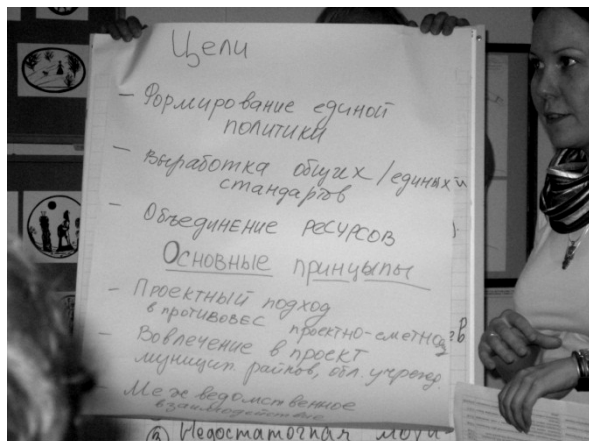 Цели
- Формирование единой
политики
- Выработка общих/единых
стандартов
- Объединение ресурсов
Основные принцыпы
- Проектный подход
в противовес проектно-сметно
- Вовлечение в проект
муницип. райнов, обл. учрежд.
- Межведомственное
взаимодействие
Недостаточная моти-